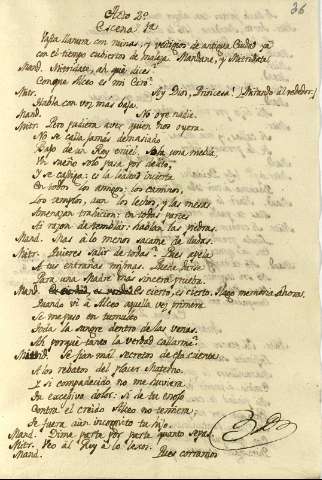 36
Acto 2º
Escena 1ª
Vasta llanura con ruinas, y vestigios de antigua Ciudad ya
con el tiempo cubiertos de maleza. Mandane, y Mitridate
Mand. Mitridate, ah qué dices?
Conque Alceo es mi Ciro?
Mitr. Ay Dios, Princesa! (Mirando al rededor.)
Habla con voz mas baja.
Mand. No oye nadie.
Mitr. Pero pudiera aver quien nos oyera.
No se calla jamás demasiado
Bajo de un Rey cruel. Sola una media,
Un sueño solo pasa por delito,
Y se castiga: es la lealtad incierta
En todos los amigos: los caminos,
Los templos, aun los lechos, y las mesas
Amenazan traicion: en todas partes
Ai razon de temblar: hablan las piedras.
Mand. Mas á lo menos sacame de dudas.
Mitr. Quieres salir de todas? Pues apela
A tus entrañas mismas. Puede darse
Para una Madre mas sincera prueba?
Mand. Es cierto, es cierto. Hago memoria ahora.
Quando vi á Alceo aquella vez primera
Se me puso en tumulto
Toda la sangre dentro de las venas.
Ah porqué tanto la verdad callarme?
Mitr. Se fian mal secretos de tal cuenta
A los rebatos del placer Materno.
Y si compadecido no me huviera
De tu excesivo dolor: si de tu enojo
Contra el creido Alceo no temiera,
Se fuera aun incognito tu hijo.
Mand. Dime parte por parte quanto sepas.
Mitr. Veo al Rey á lo lexos.
Mand. Pues corramos